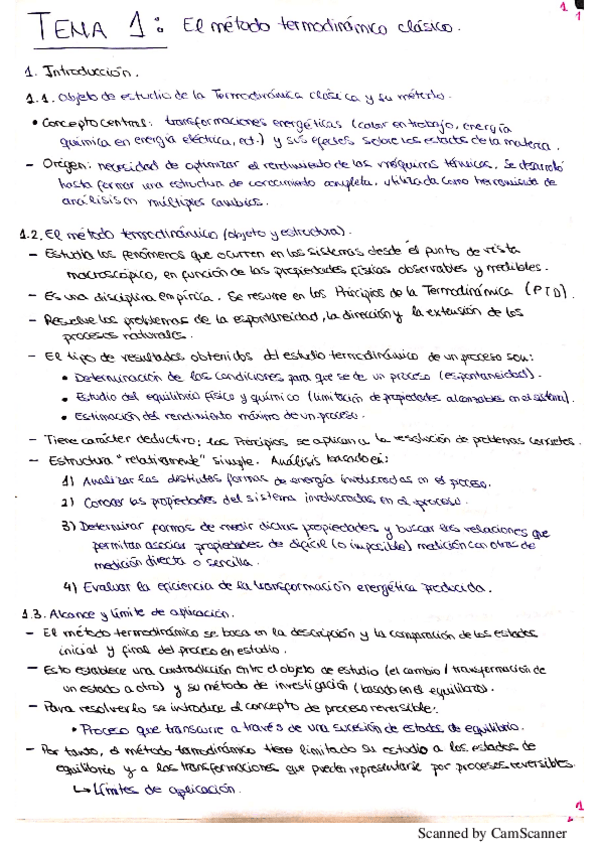 1
1
TEMA 1: El método termodinámico clásico.
1. Introducción.
1.1. Objeto de estudio de la Termodinámica clásica y su método.
• Concepto central: transformaciones energéticas (calor en trabajo, energía
química en energía eléctrica, ect.) y sus efectos sobre los estados de la materia.
- Origen: necesidad de optimizar el rendimiento de las máquinas térmicas. Se desarrolló
hasta formar una estructura de conocimiento completa, utilizada como herramienta de
análisis en múltiples cambios.
1.2. El método termodinámico (objeto y estructura).
- Estudia los fenómenos que ocurren en los sistemas desde el punto de vista
macroscópico, en función de las propiedades físicas observables y medibles.
- Es una disciplina empírica. Se resume en los Principios de la Termodinámica (PTD).
- Resuelve los problemas de la espontaneidad, la dirección y la extensión de los
procesos naturales.
- El tipo de resultados obtenidos del estudio termodinámico de un proceso son:
• Determinación de las condiciones para que se de un proceso (espontaneidad).
• Estudio del equilibrio físico y químico (limitación de propiedades alcanzables en el sistema).
• Estimación del rendimiento máximo de un proceso.
- Tiene carácter deductivo: los Principios se aplican a la resolución de problemas concretos.
- Estructura "relativamente" simple. Análisis basado en:
1) Analizar las distintas formas de energía involucradas en el proceso.
2) Conocer las propiedades del sistema involucradas en el proceso.
3) Determinar formas de medir dichas propiedades y buscar las relaciones que
permitan asociar propiedades de difícil (o imposible) medición con otras de
medición directa o sencilla.
4) Evaluar la eficiencia de la transformación energética producida.
1.3. Alcance y límite de aplicación.
- El método termodinámico se basa en la descripción y la comparación de los estados
inicial y final del proceso en estudio.
- Esto establece una contradicción entre el objeto de estudio (el cambio / transformación de
un estado a otro) y su método de investigación (basado en el equilibrio).
- Para resolverlo se introduce el concepto de proceso reversible:
• Proceso que transcurre a través de una sucesión de estados de equilibrio.
- Por tanto, el método termodinámico tiene limitado su estudio a los estados de
equilibrio y a las transformaciones que pueden representarse por procesos reversibles.
↳ Límites de aplicación.
1
Scanned by CamScanner